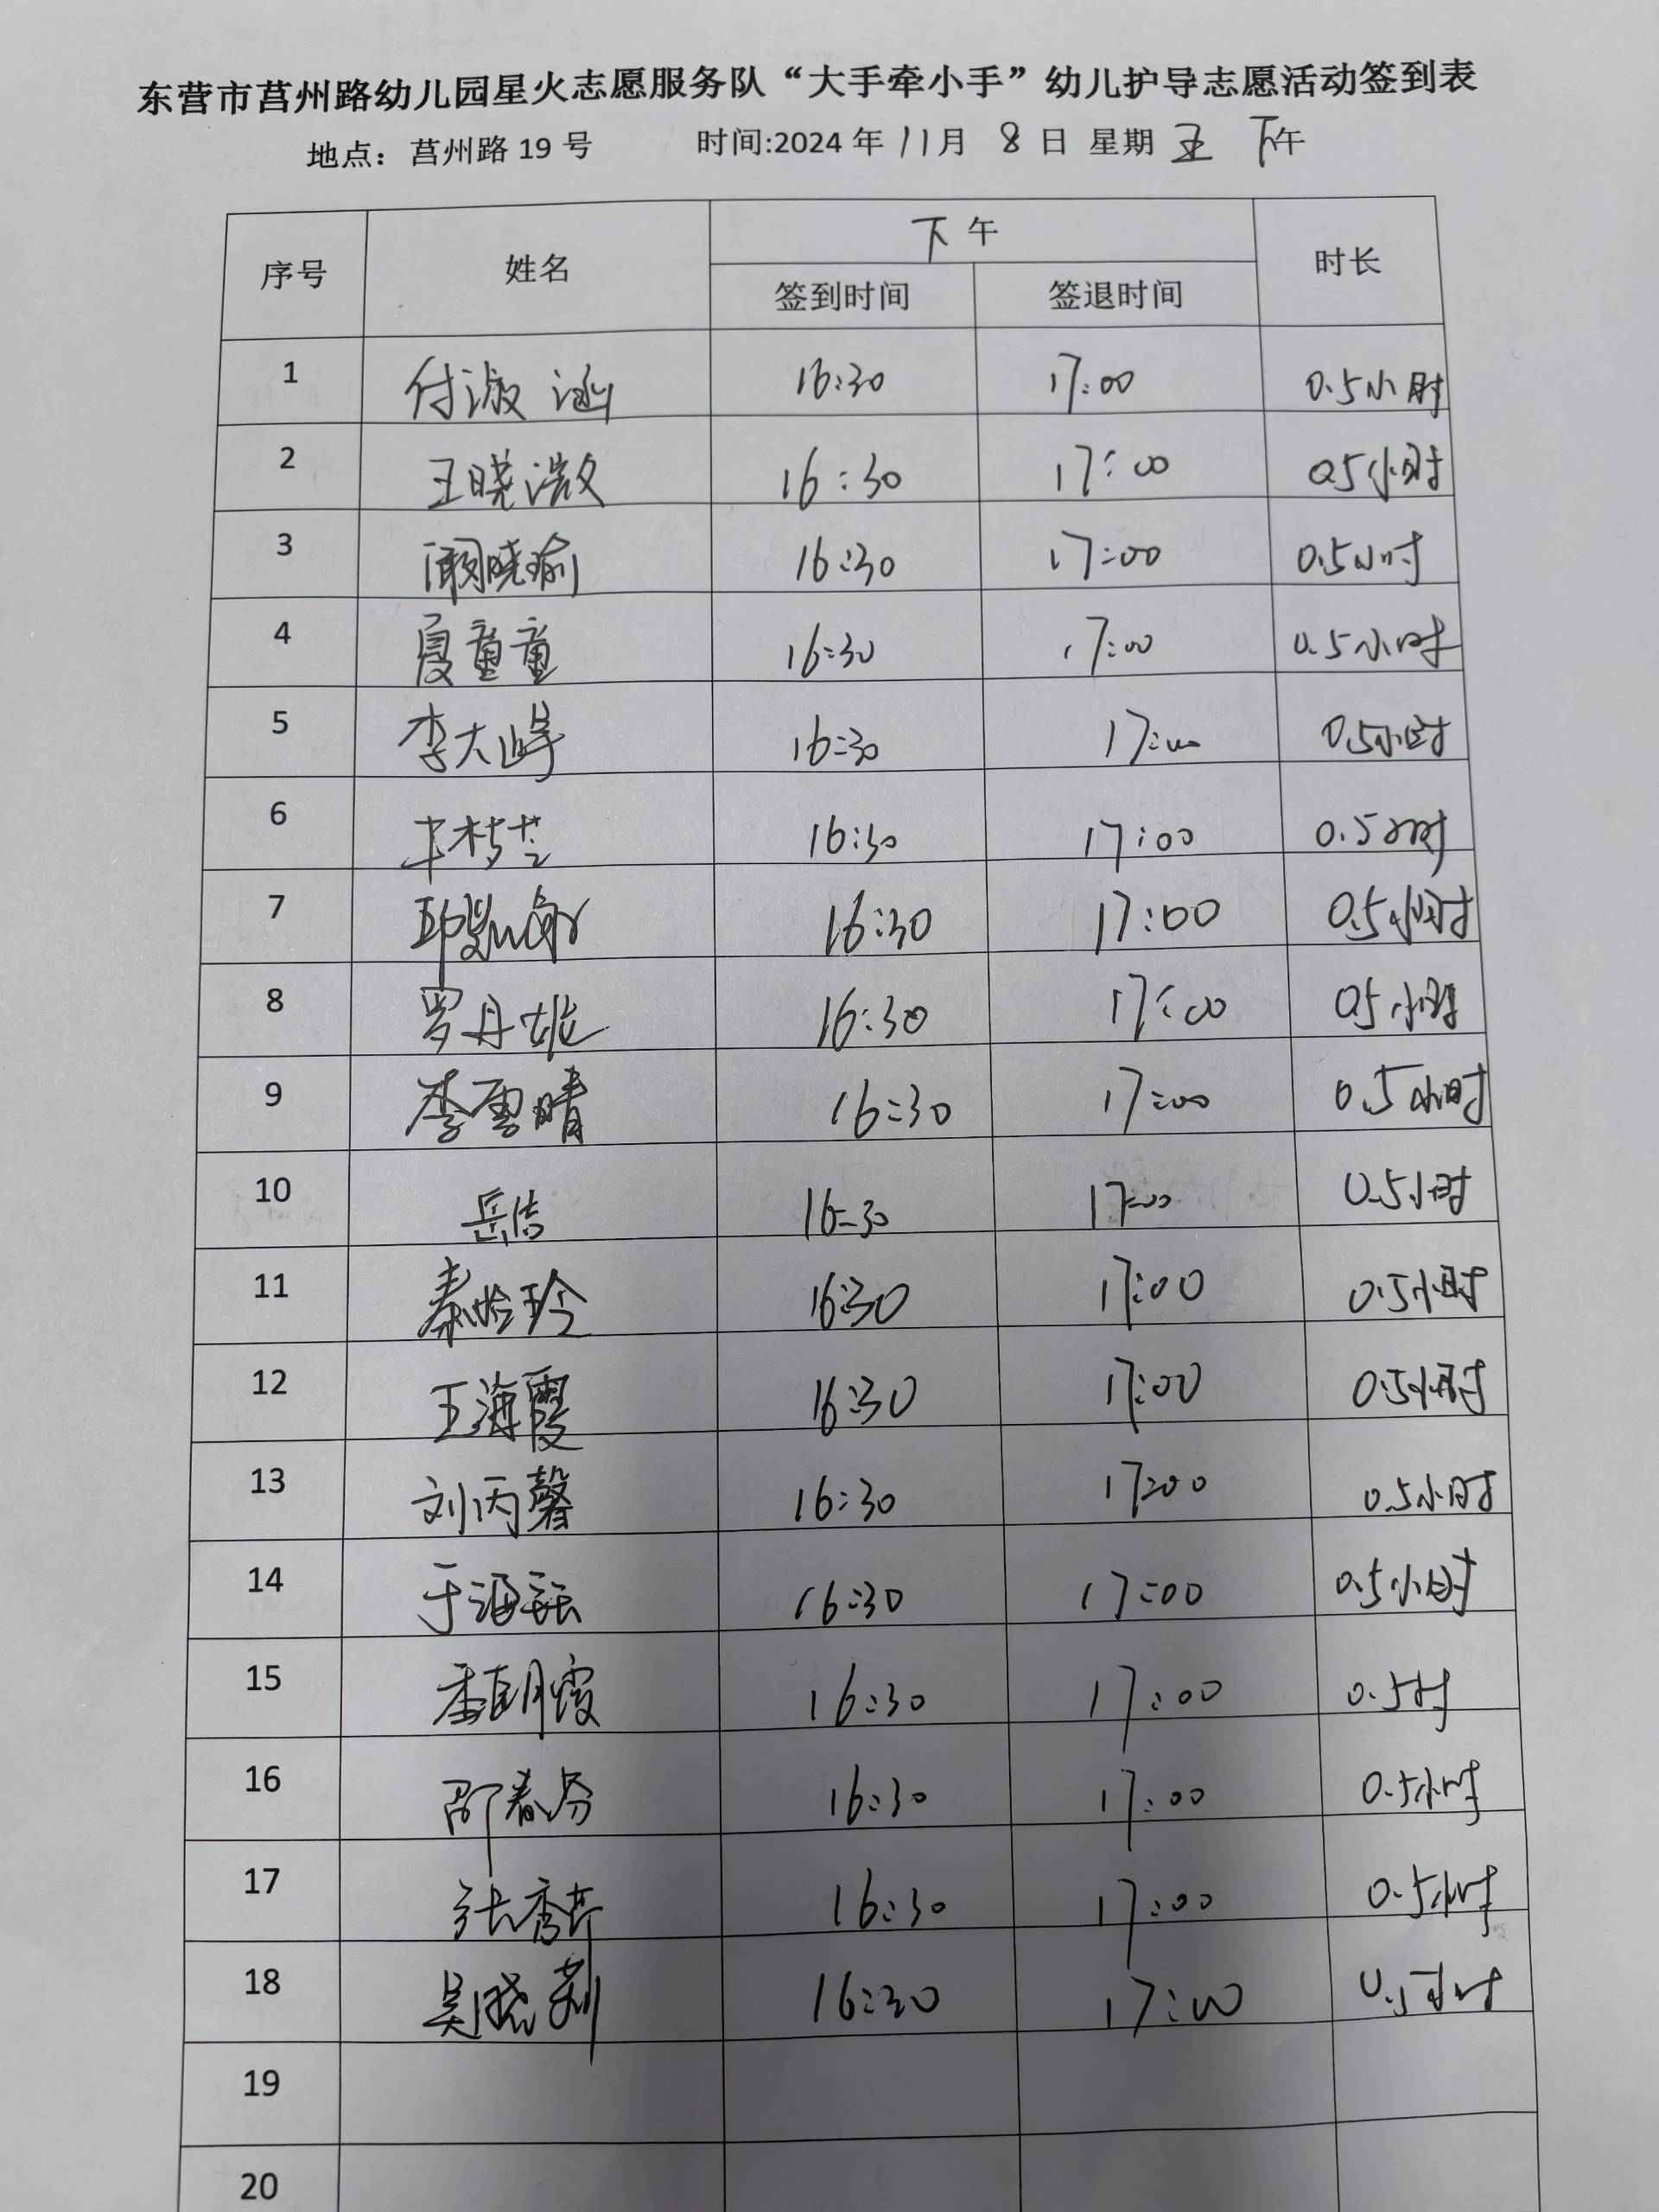 东营市莒州路幼儿园星火志愿服务队“大手牵小手”幼儿护导志愿活动签到表
地点：莒州路 19 号 时间:2024 年 11 月 8 日 星期 五 下午
序号 姓名 下午 时长
签到时间 签退时间
1 付淑涵 16:30 17:00 0.5小时
2 王晓溦 16:30 17:00 0.5小时
3 阚晓瑜 16:30 17:00 0.5小时
4 夏童童 16:30 17:00 0.5小时
5 李大峰 16:30 17:00 0.5小时
6 16:30 17:00 0.5小时
7 16:30 17:00 0.5小时
8 罗丹妮 16:30 17:00 0.5小时
9 李雪晴 16:30 17:00 0.5小时
10 岳洁 16:30 17:00 0.5小时
11 秦玲 16:30 17:00 0.5小时
12 王海霞 16:30 17:00 0.5小时
13 刘丙馨 16:30 17:00 0.5小时
14 于海 16:30 17:00 0.5小时
15 季朝霞 16:30 17:00 0.5时
16 邵春芬 16:30 17:00 0.5小时
17 张秀芹 16:30 17:00 0.5小时
18 吴晓莉 16:30 17:00 0.5小时
19
20